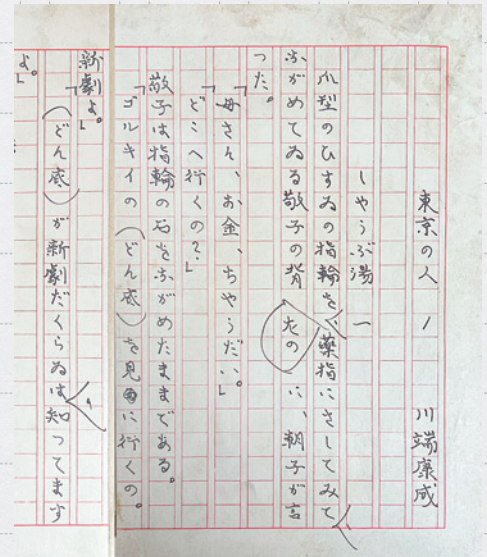 東京の人 1 川端康成
しやうぶ湯 一
爪型のひすゐの指輪を、薬指にさしてみて、
ながめてゐる敬子の背 左の に、朝子が言
つた。
「母さん、お金、ちやうだい。」
「どこへ行くの?」
敬子は指輪の石をながめたままである。
「ゴルキイの(どん底)を見に行くの。
新劇よ。」
「(どん底)が新劇だくらゐは、知つてます
よ。」